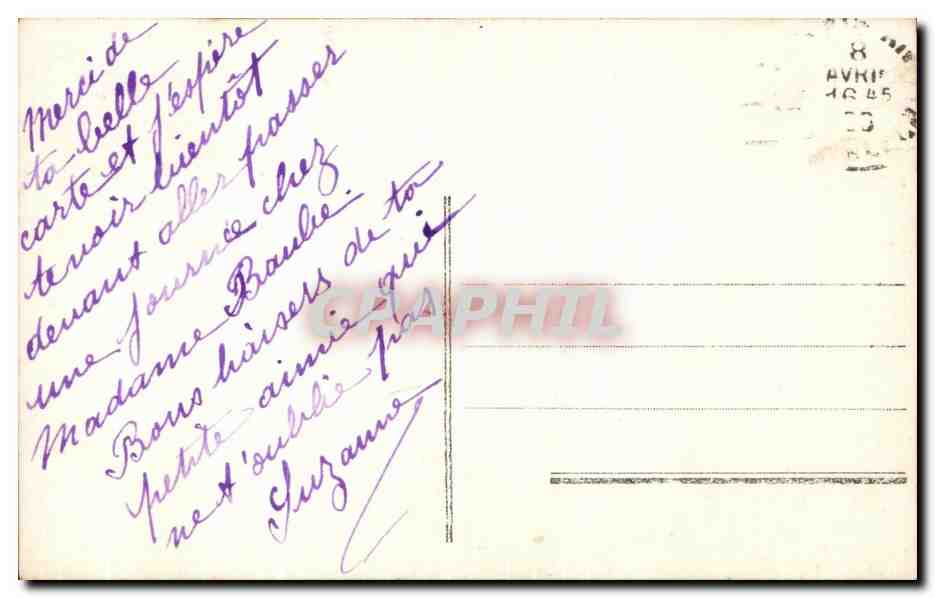 Merci de
ta belle
carte et j'espère
te voir bientôt
devant aller passer
une journée chez
Madame Baube.
Bons baisers de ta
petite amie qui
ne t'oublie pas
Suzanne
8
AVRIL
18 45
CPAPHIL